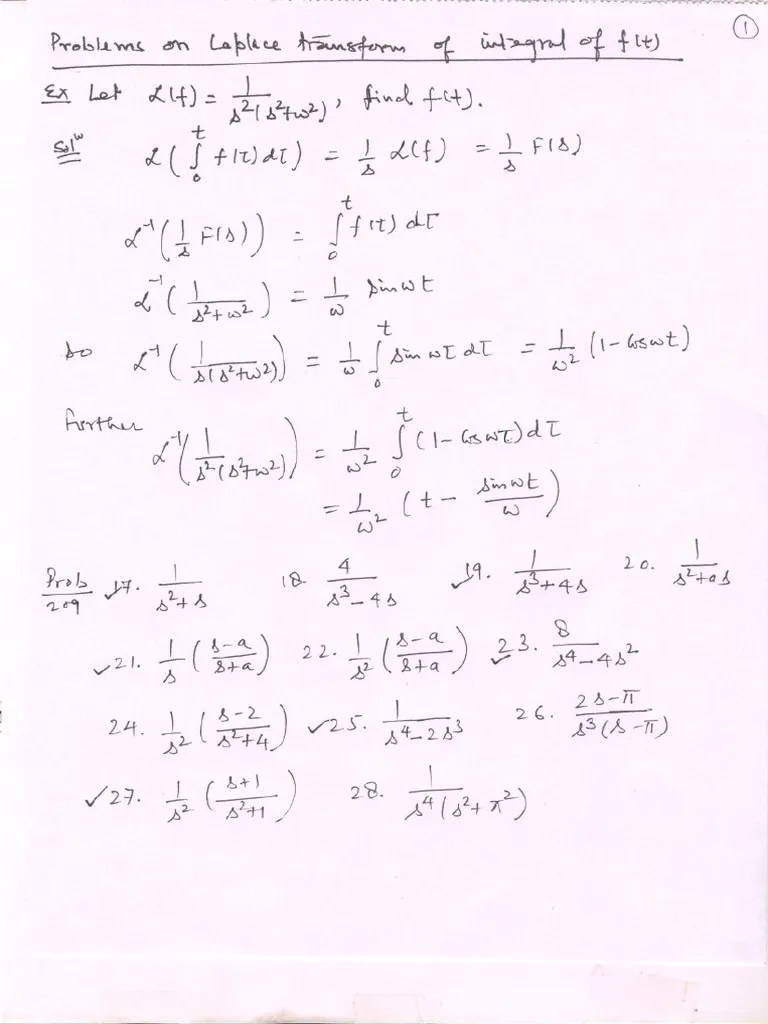 ①
Problems on Laplace transform of integral of f(t)
Ex Let ℒ(f) = 1/(s²(s²+ω²)), find f(t).
Solⁿ ℒ(∫₀ᵗ f(τ)dτ) = 1/s ℒ(f) = 1/s F(s)
ℒ⁻¹(1/s F(s)) = ∫₀ᵗ f(τ) dτ
ℒ⁻¹(1/(s²+ω²)) = 1/ω sinωt
so ℒ⁻¹(1/(s(s²+ω²))) = 1/ω ∫₀ᵗ sin ωτ dτ = 1/ω² (1-cosωt)
Further ℒ⁻¹(1/(s²(s²+ω²))) = 1/ω² ∫₀ᵗ (1-cosωτ)dτ
= 1/ω² (t - sinωt/ω)
Prob/209 ✓17. 1/(s²+s) 18. 4/(s³-4s) ✓19. 1/(s³+4s) 20. 1/(s²+as)
✓21. 1/s ((s-a)/(s+a)) 22. 1/s² ((s-a)/(s+a)) ✓23. 8/(s⁴-4s²)
24. 1/s² ((s-2)/(s²+4)) ✓25. 1/(s⁴-2s³) 26. (2s-π)/(s³(s-π))
✓27. 1/s² ((s+1)/(s²+1)) 28. 1/(s⁴(s²+π²))